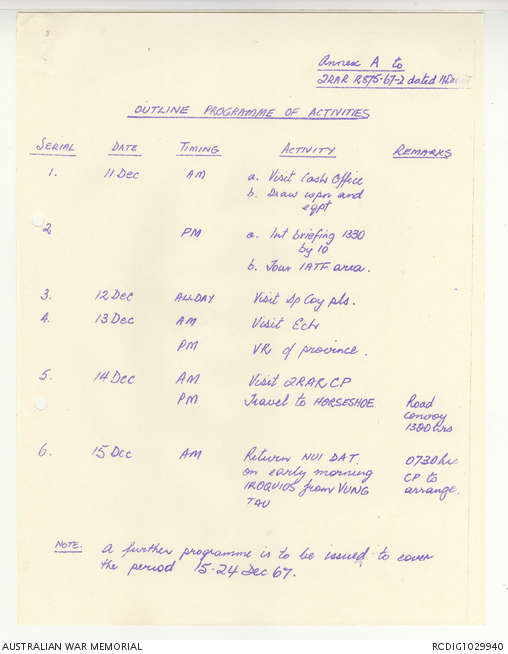 Annex A to
2RAR R575-67-2 dated
OUTLINE PROGRAMME OF ACTIVITIES
SERIAL DATE TIMING ACTIVITY REMARKS
1. 11 Dec AM a. Visit Cash Office
b. Draw wpn and
eqpt
2 PM a. Int briefing 1330
by IO
b. Tour 1ATF area.
3. 12 Dec ALLDAY Visit Sp Coy pls.
4. 13 Dec AM Visit Ech
PM VR of province.
5. 14 Dec AM Visit 2RAR CP
PM Travel to HORSESHOE Road
convoy
1300 hrs
6. 15 Dec AM Return NUI DAT. 0730 hr
on early morning CP to
IROQUIOS from VUNG arrange.
TAU
NOTE. A further programme is to be issued to cover
the period 15-24 Dec 67.
AUSTRALIAN WAR MEMORIAL RCDIG1029940